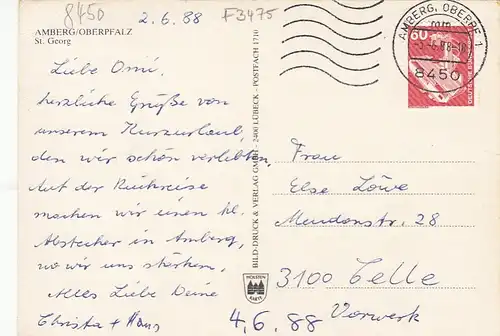 8450
2.6.88
F3475
AMBERG/OBERPFALZ
St. Georg
AMBERG, OBERPF 1
8450
60
Liebe Omi,
herzliche Grüße von
unserem Kurzurlaub,
den wir schön verlebten.
Auf der Rückreise
machen wir einen kl.
Abstecher in Amberg,
wo wir uns stärken.
Alles Liebe Deine
Christa + Hans
BILD-DRUCK & VERLAG GMBH · 2400 LÜBECK · POSTFACH 1710
HOLSTEN
KARTE
Frau
Else Löwe
28
3100 Celle
Vorwerk
4.6.88